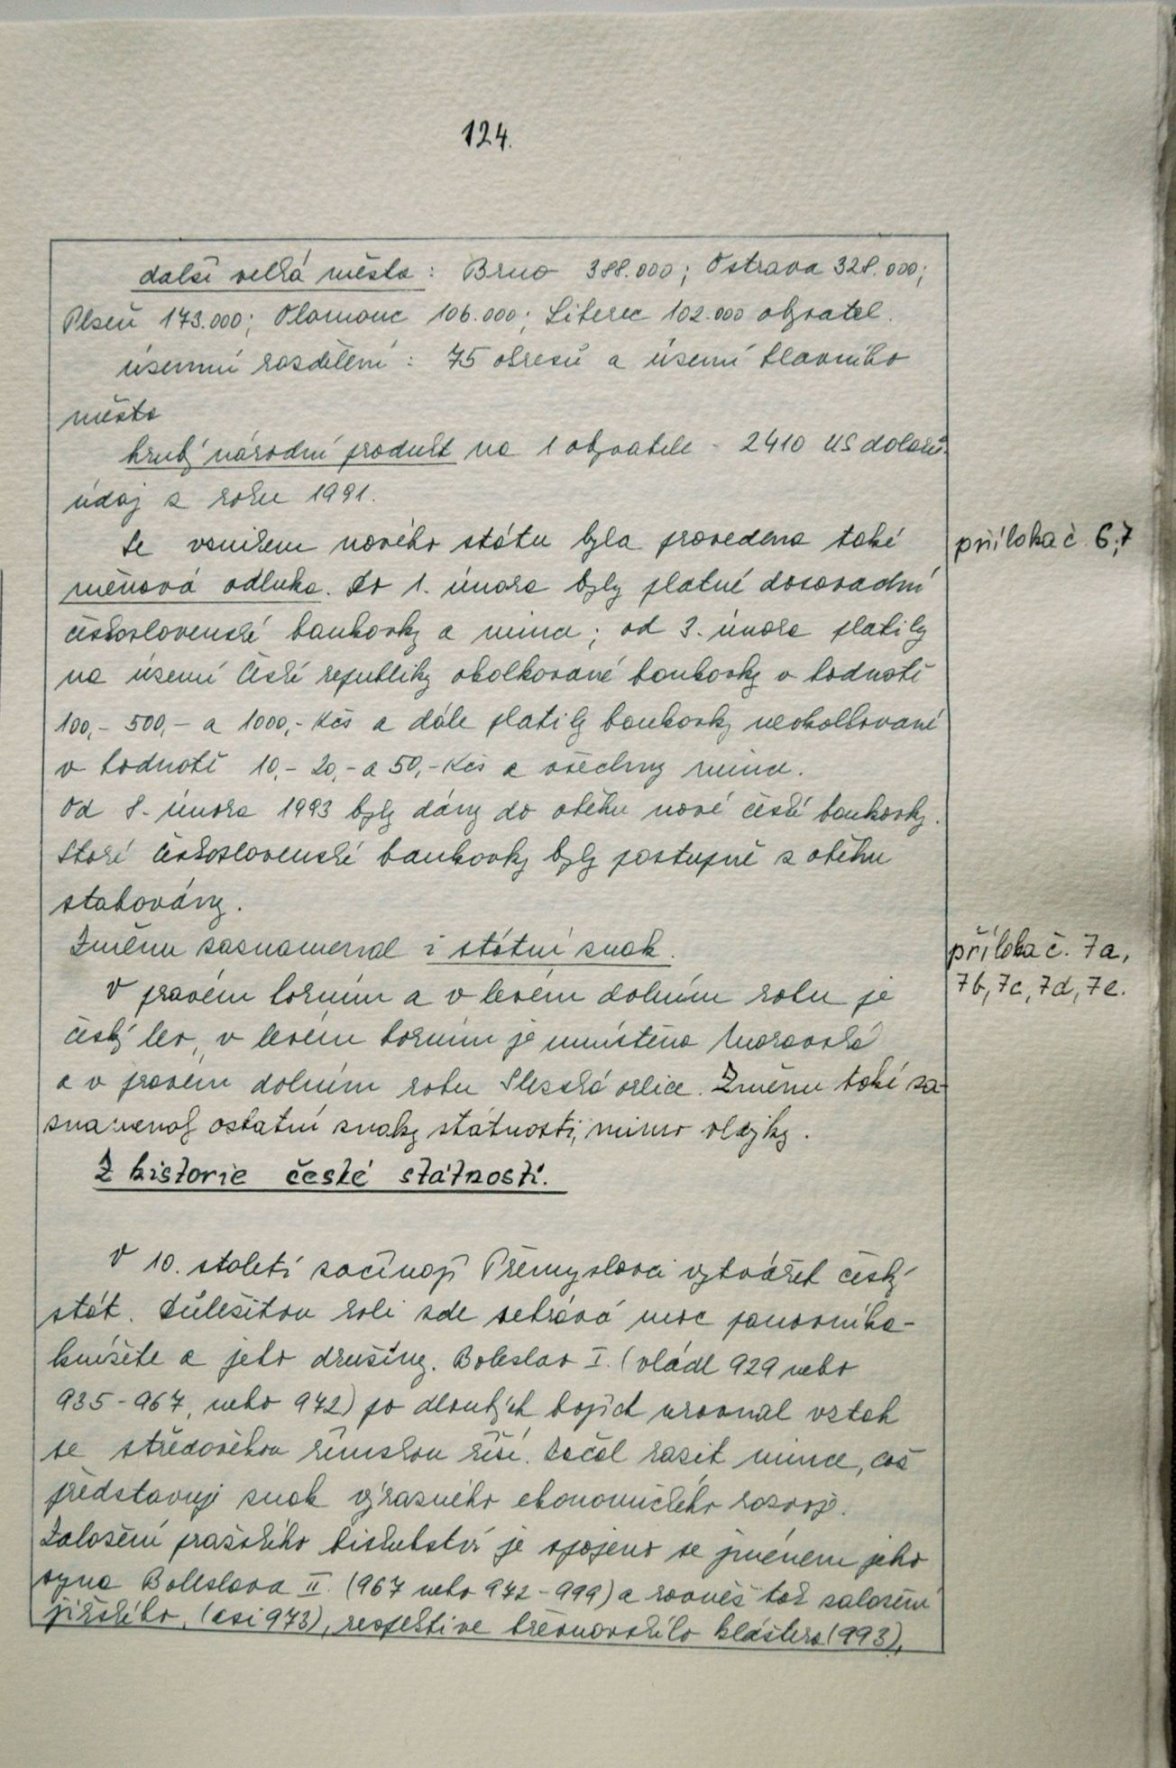 124.
další velká města: Brno 388.000; Ostrava 328.000;
Plzeň 173.000; Olomouc 106.000; Liberec 102.000 obyvatel.
územní rozdělení: 75 okresů a území hlavního
města
hrubý národní produkt na 1 obyvatele - 2410 US dolarů.
údaj z roku 1991.
Se vznikem nového státu byla provedena také
měnová odluka. Do 1. února byly platné dosavadní
československé bankovky a mince; od 3. února platily
na území České republiky okolkované bankovky v hodnotě
100,- 500,- a 1000,- Kčs a dále platily bankovky neokolkované
v hodnotě 10,- 20,- a 50,- Kčs a všechny mince.
Od 8. února 1993 byly dány do oběhu nové české bankovky.
Staré československé bankovky byly postupně z oběhu
stahovány.
Změnu zaznamenal i státní znak.
V pravém horním a v levém dolním rohu je
český lev, v levém horním je umístěna Moravská
a v pravém dolním rohu Slezská orlice. Změnu také za-
znamenaly ostatní znaky státnosti, mimo vlajky.
příloha č. 6,7
příloha č. 7a,
7b, 7c, 7d, 7e.
Z historie české státnosti.
V 10. století začínají Přemyslovci vytvářet český
stát. Důležitou roli zde sehrává moc panovníka-
knížete a jeho družiny. Boleslav I. (vládl 929 nebo
935-967, nebo 972) po dlouhých bojích urovnal vztah
se středověkou římskou říší. Začal razit mince, což
představuje znak výrazného ekonomického rozvoje.
Založení pražského biskubství je spojeno se jménem jeho
syna Boleslava II. (967 nebo 972-999) a rovněž tak založení
jiřského, (asi 973), respektive břevnovského kláštera (993),